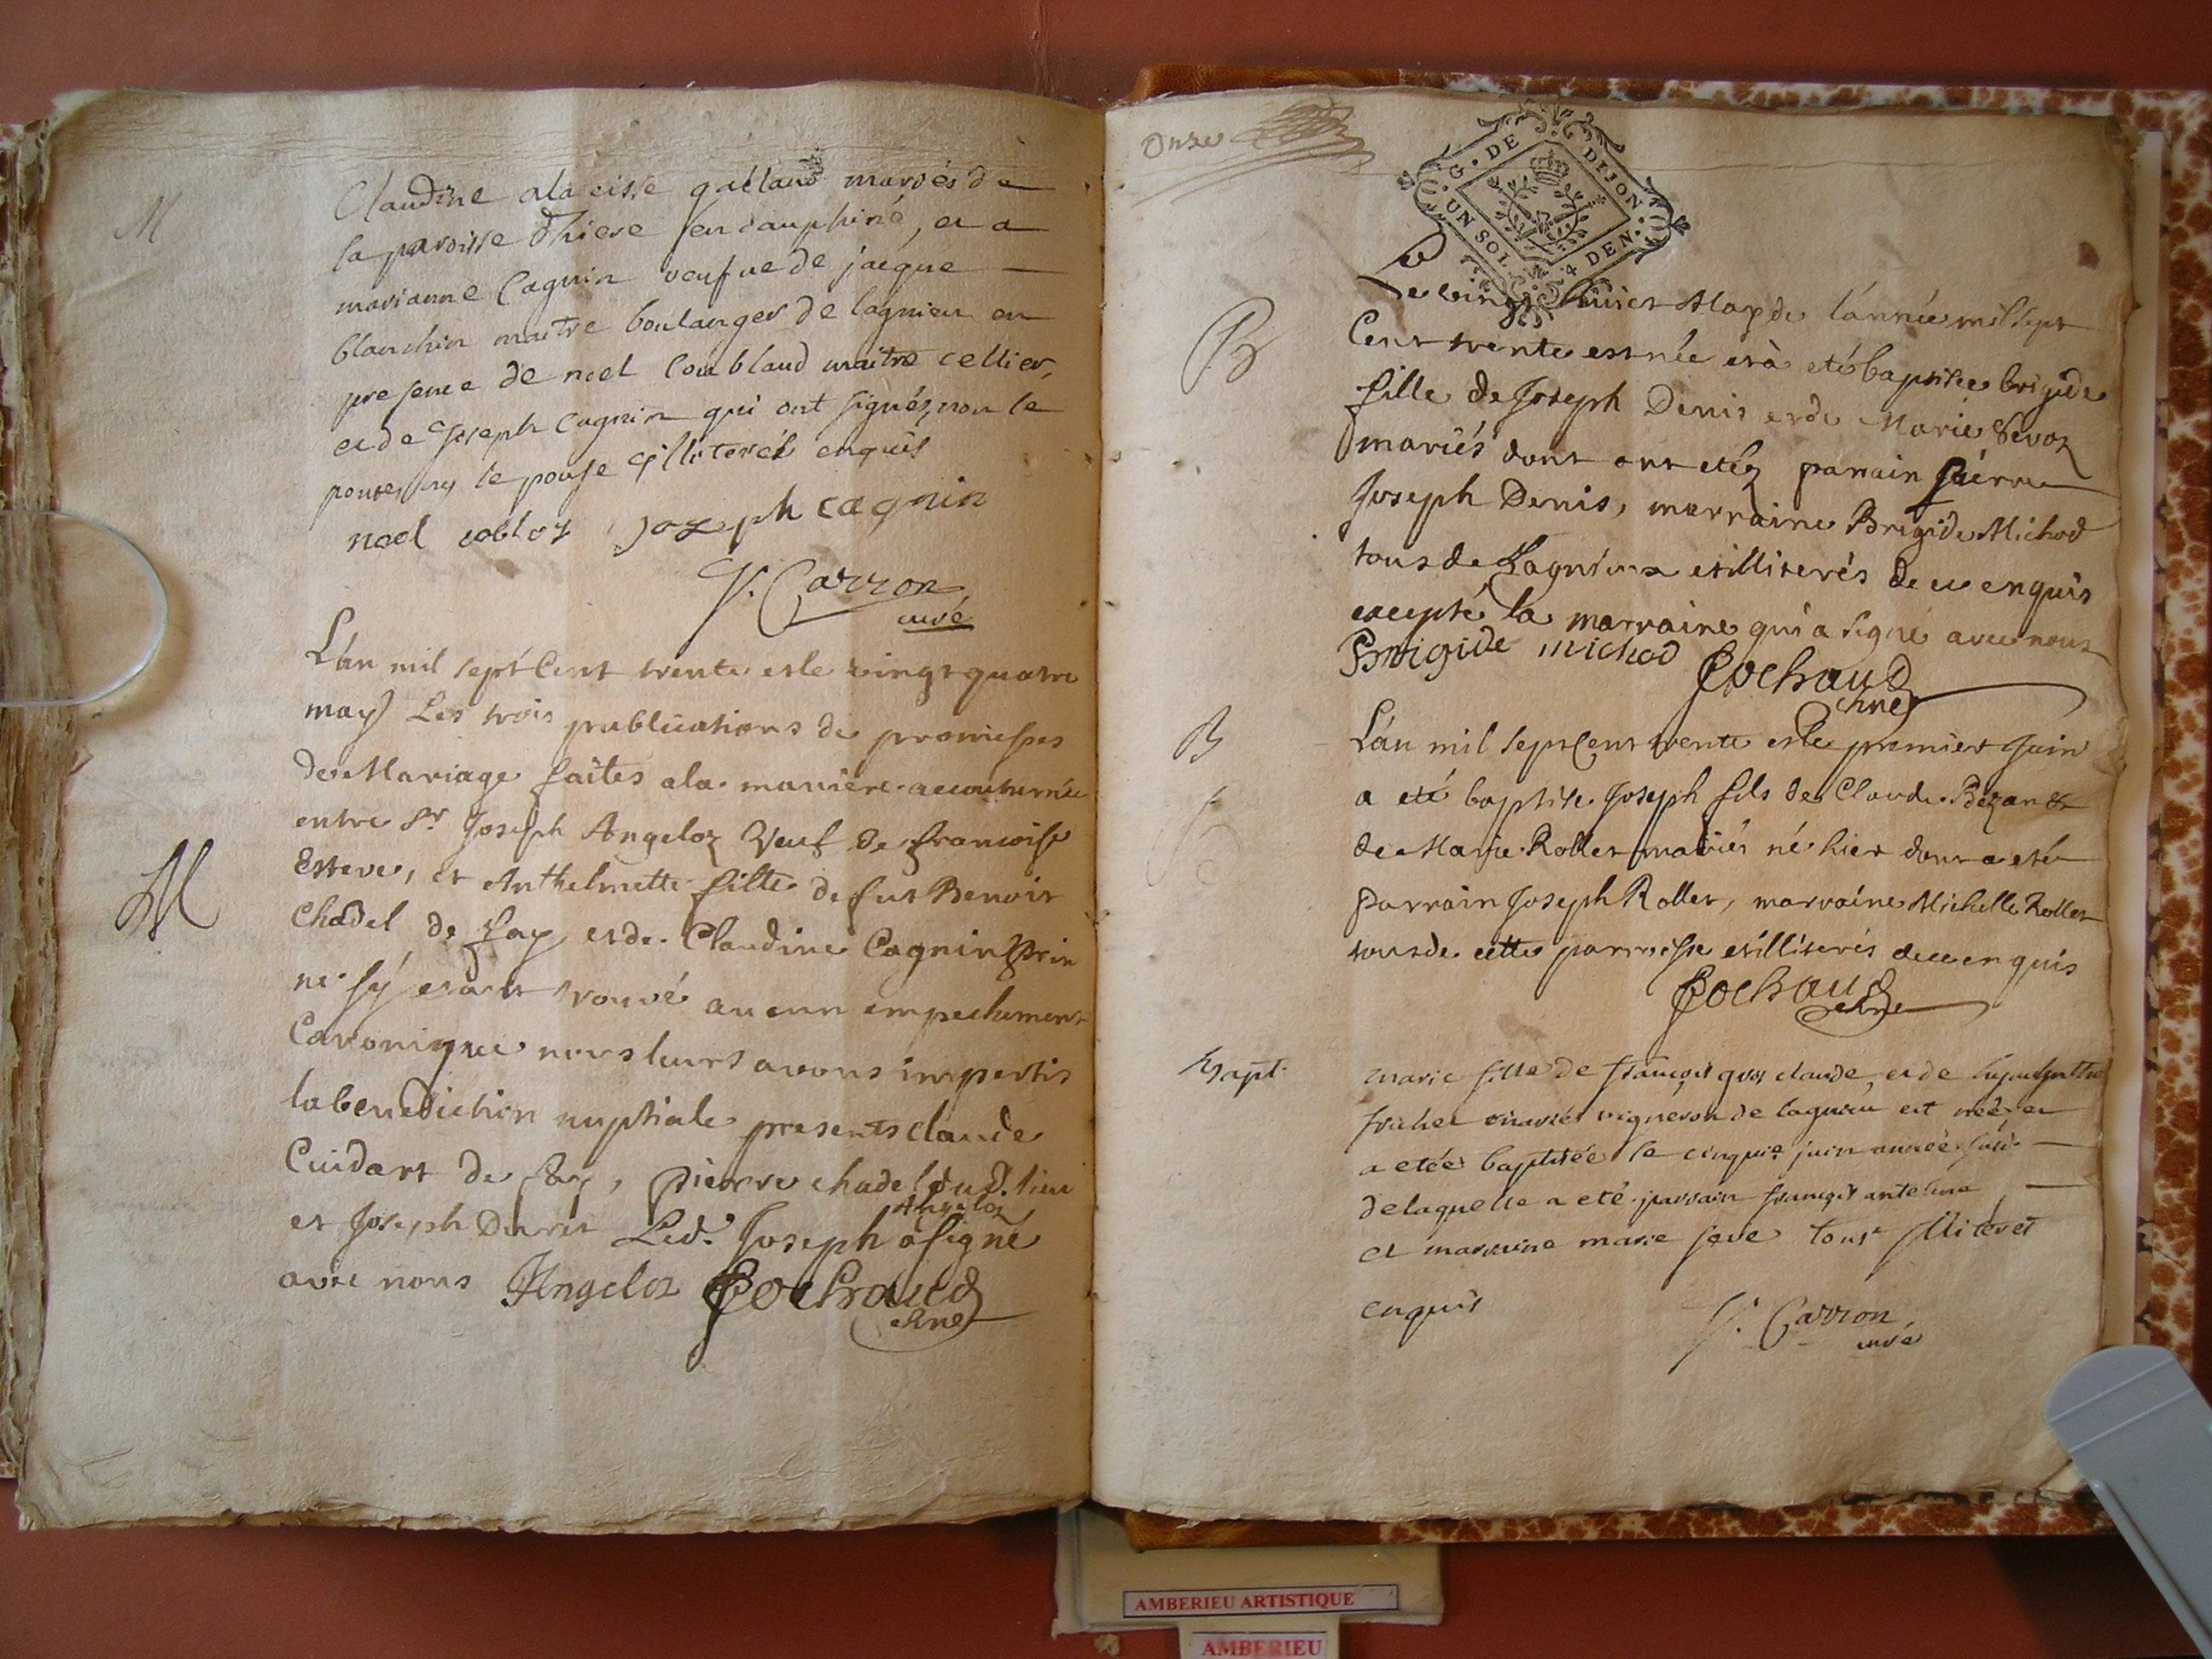 M
Claudine alacisse galland mariés de
la paroisse d'hiere en dauphiné, et a
marianne Cagnin veufve de jacque
blanchin maitre boulanger de lagnieu en
presence de noel Coublaud maitre cellier,
et de Joseph Cagnin qui ont signés, non le
pouse illiterés enquis
noel joseph cagnin
Carron
curé
L'an mil sept Cent trente et le vingt quatre
may Les trois publications de promesses
de Mariage faites a la maniere accoutumée
entre Sr Joseph Angeloz Veuf de francoise
Esteve, et Anthelmette fille de fut Benoit
M
Chadel de fay et de Claudine Cagnin
ne s'y etant trouvé aucun empechement
Canonique nous leurs avons impertis
la benediction nuptiale presents claude
Cuidart de fay, pierre chadel dud. lieu
Angeloz
et Joseph Led. Joseph a signé
avec nous Angeloz Cochaud
chne
Onze
G. DE DIJON
UN SOL 4 DEN.
Le vingt huict May de l'année mil sept
B
Cent trente est née et à eté baptisée brigide
fille de Joseph Denis et de Marie
mariés dont ont etéz parrain pierre
Joseph Denis, marraine Brigide Michod
tous de Lagnieu et illiterés de ce enquis
excepté la marraine qui a signé avec nous
Brigide michod Cochaud
chne
B
L'an mil sept Cent trente et le premier Juin
a eté baptisé Joseph fils de Claude Bezan et
de Marie Rollet mariés né hier dont a eté
parrain Joseph Rollet, marraine Michelle Rollet
tous de cette parroisse et illiterés de ce enquis
Cochaud
chne
Bapt.
marie fille de françois gros claude, et de
mariés vigneron de lagnieu est née, et
a etée baptisée le cinquie juin année susd.
de laquelle a eté parrain françois antelme,
et marraine marie jeve tous illiteres
enquis
Carron
curé
AMBERIEU ARTISTIQUE
AMBERIEU